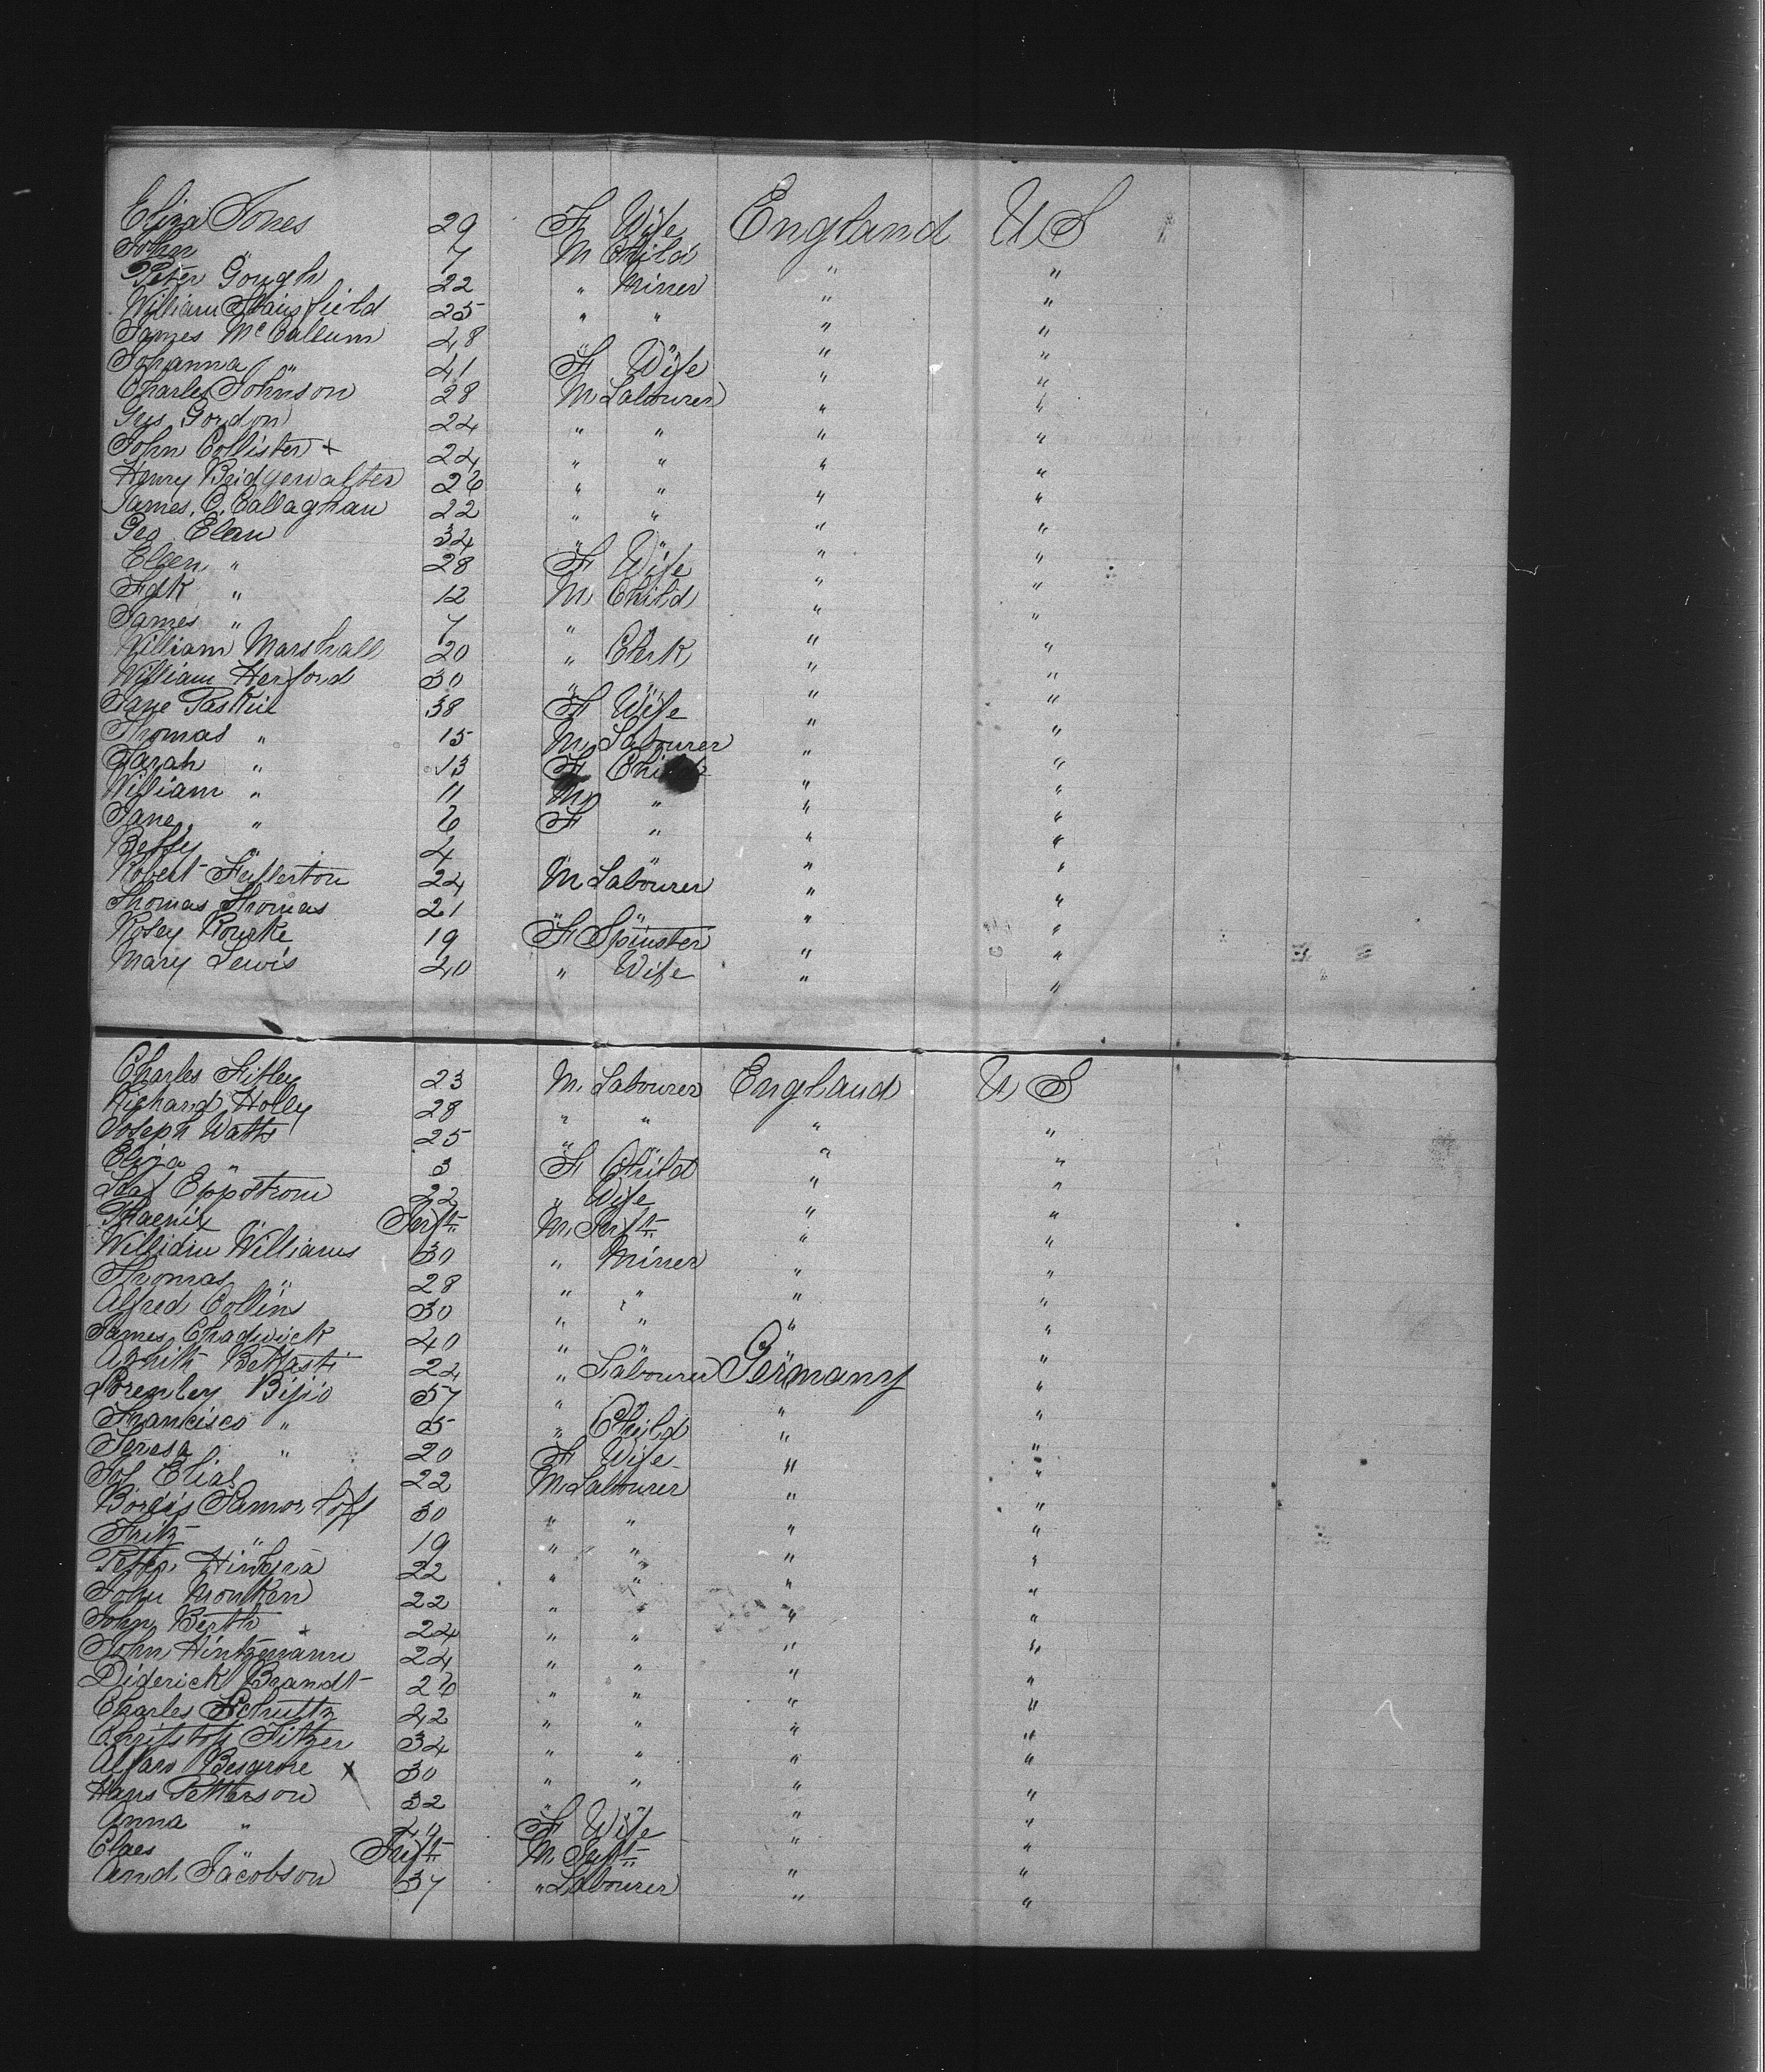 Eliza Jones 29 F Wife England U S
John " 7 M Child " "
Peter Gough 22 " Miner " "
William Stainsfield 25 " " " "
James McCallum 48 " " " "
Johanna " 41 F Wife " "
Charles Johnson 28 M Labourer " "
Gus Gordon 24 " " " "
John Collister x 24 " " " "
Henry Bridgewalter 26 " " " "
James O. Callaghan 22 " " " "
Geo Elan 34 " " " "
Elen " 28 F Wife " "
Fdk " 12 M Child " "
James " 7 " " " "
William Marshall 20 " Clerk " "
William Herford 30 " " " "
Jane Paskie 38 F Wife " "
Thomas " 15 M Labourer " "
Sarah " 13 F Child " "
William " 11 M " " "
Jane " 6 F " " "
Betsy " 4 " " " "
Robert Fullerton 24 M Labourer " "
Thomas Thomas 21 " " " "
Rosey Rourke 19 F Spinster " "
Mary Lewis 20 " Wife " "
Charles Fitley 23 M Labourer England U S
Richard Holley 28 " " " "
Joseph Watts 25 " " " "
Eliza " 3 F Child " "
Eppstrom 22 " Wife " "
Phaenix " Inft M Inft " "
William Williams 30 " Miner " "
Thomas " 28 " " " "
Alfred Collins 30 " " " "
James Chadwick 40 " " " "
Bekasti 24 " Labourer Germany "
Bijio 57 " " " "
Francisco " 5 " Child " "
Teresa " 20 F Wife " "
Jos Elias 22 M Labourer " "
30 " " " "
Fritz " 19 " " " "
Peter 22 " " " "
John Monken 22 " " " "
John Berth 24 " " " "
John Hintzmann x 24 " " " "
Diderick Brandt 26 " " " "
Charles Schultz 42 " " " "
Christoph Fitzer 34 " " " "
Besgrove x 30 " " " "
Hans Petterson 32 " " " "
Anna " F Wife " "
Claes " Inft M Inft " "
And. Jacobson 37 " Labourer " "